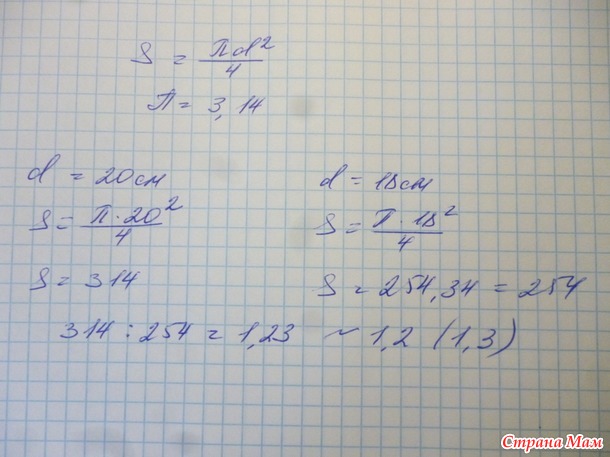 S = Пd²/4
П = 3,14
d = 20см
S = П·20²/4
S = 314
d = 18см
S = П·18²/4
S = 254,34 = 254
314 : 254 = 1,23 ~ 1,2 (1,3)
Страна Мам